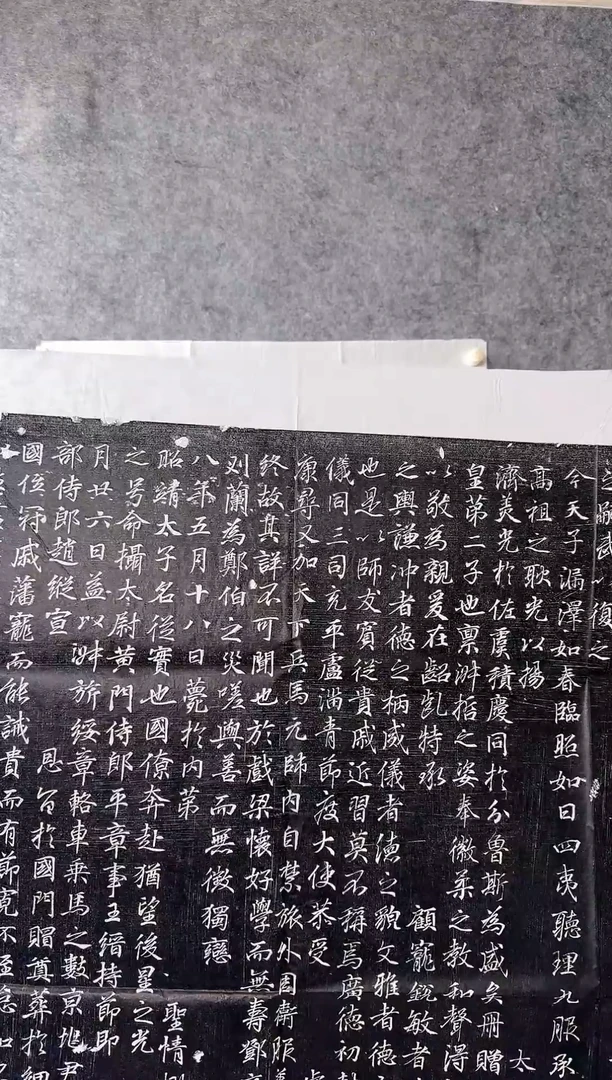 武以後之
今天子漏澤如春臨照如日四夷聽理九服承
高祖之耿光以揚 太
濟美光於佐虞積慶同於分魯斯為盛矣冊贈
皇第二子也禀淋括之姿奉徽柔之教和聲淂
以敬為親爰在齠齓特承 顧寵銳敏者
之輿謙冲者德之柄威儀者德之貌文雅者德
也是以師友賓從貴戚近習莫不稱焉廣德初
儀同三司充平盧淄青節度大使恭受
康尋又加天下兵馬元帥內自禁旅外固衛
終故其詳不可聞也於戲梁懷好學而無壽鄧
刘蘭為鄭伯之災嗟與善而無徵獨戀
八年五月十八日薨於內第
昭靖太子名從實也國僚奔赴猶望後星之光 聖情
之号命攝太尉黃門侍郎平章事王縉持節即
月廿六日益以 旂綏章輅車乘馬之數京兆尹
部侍郎趙縱宣 恩旨於國門賵奠葬於細
國位冠戚藩寵而能誡貴而有節寬不至